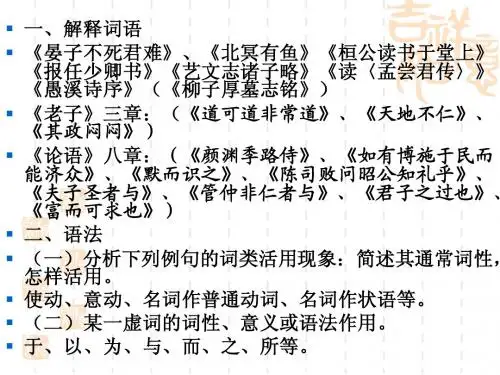 一、解释词语
《晏子不死君难》、《北冥有鱼》《桓公读书于堂上》
《报任少卿书》《艺文志诸子略》《读〈孟尝君传〉》
《愚溪诗序》（《柳子厚墓志铭》）
《老子》三章：（《道可道非常道》、《天地不仁》、
《其政闷闷》）
《论语》八章：（《颜渊季路侍》、《如有博施于民而
能济众》、《默而识之》、《陈司败问昭公知礼乎》、
《夫子圣者与》、《管仲非仁者与》、《君子之过也》、
《富而可求也》）
二、语法
（一）分析下列例句的词类活用现象：简述其通常词性，
怎样活用。
使动、意动、名词作普通动词、名词作状语等。
（二）某一虚词的词性、意义或语法作用。
于、以、为、与、而、之、所等。